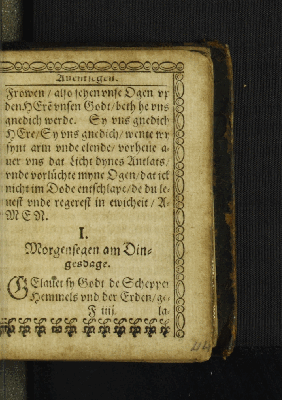 Auentsegen.
Frowen / also sehen vnse Ogen vp
den HErēn vnsen Godt / beth he vns
gnedich werde. Sy vns gnedich
HEre / Sy vns gnedich / wente wy
synt arm vnde elende / vorheue a-
uer vns dat Licht dynes Antlats /
vnde vorlüchte myne Ogen / dat ick
nicht im Dode entschlape / de du le-
uest vnde regerest in ewicheit / A-
MEN.
I.
Morgensegen am Din-
gesdage.
GElauet sy Godt de Schepper
Hemmels vnd der Erden / ge-
F iiij. la-